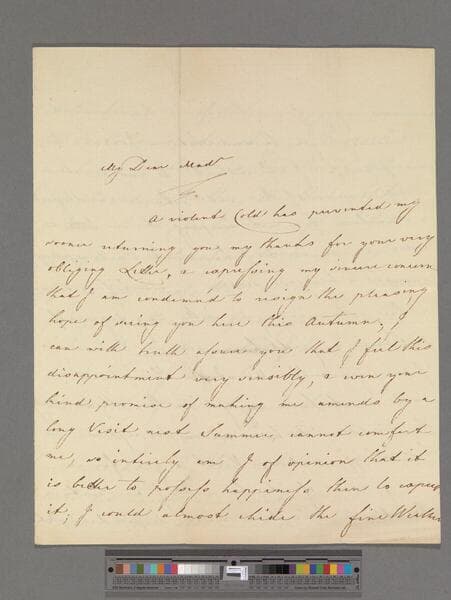 My Dear Madm
A violent Cold has prevented my
sooner returning you my thanks for your very
obliging Letter, & expressing my sincere concern
that I am condemn'd to resign the pleasing
hope of seeing you here this Autumn; I
can with truth assure you that I feel this
disappointment very sensibly, & even your
kind promise of making me amends by a
long Visit next Summer cannot comfort
me, so intirely am I of opinion that it
is better to possess happiness than to expect
it; I could almost chide the fine Weather